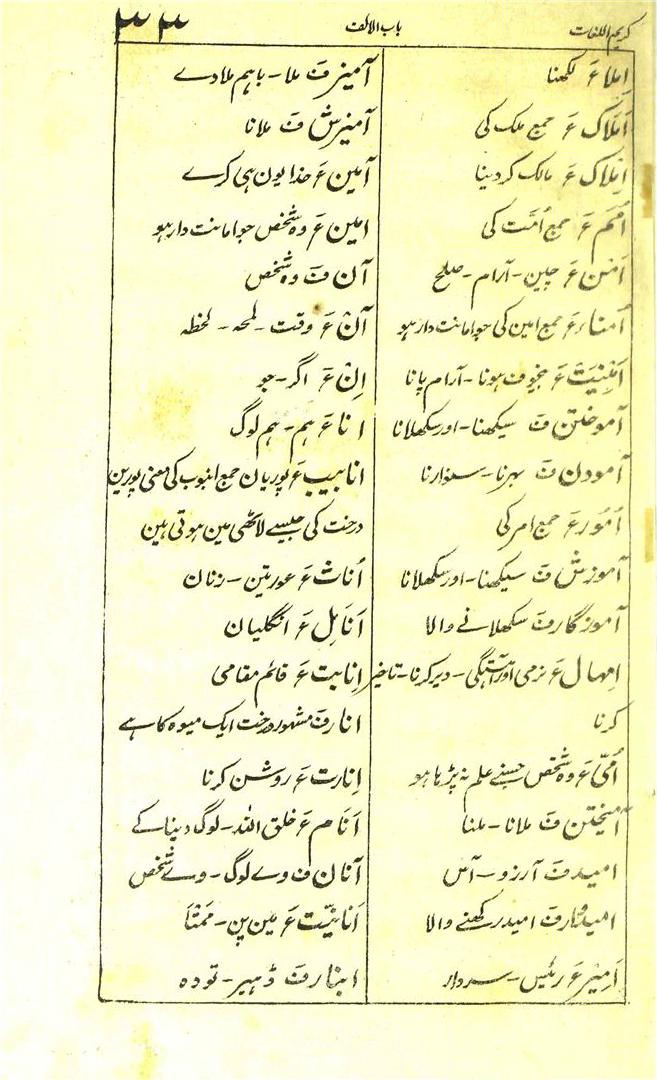 کریم اللغات
باب الالف
۳۳
اِملا ءَ لکھنا
اَملاک ءَ جمع ملک کی
اِملاک ءَ مالک کردینا
اُمَم ءَ جمع اُمّت کی
اَمن ءَ چین - آرام - صلح
اُمناء ءَ جمع امین کی جو امانت دار ہو
اَمنیت ءَ بیخوف ہونا - آرام پانا
آموختن فَ سیکھنا - اور سکھلانا
آمودن فَ بہرنا - سنوارنا
اُمُور ءَ جمع امر کی
آموزش فَ سیکھنا - اور سکھلانا
آموزگار فَ سکھلانے والا
اِمہال ءَ نرمی اور آہستگی - دیر کرنا - تاخیر
کرنا
اُمّی ءَ وہ شخص جسنے علم نہ پڑہا ہو
آمیختن فَ ملانا - ملنا
امید فَ آرزو - آس
امیدوار فَ امید رکھنے والا
اَمِیْر ءَ رئیس - سردار
آمیز فَ ملا - باہم ملادے
آمیزش فَ ملانا
آمین ءَ خدا یون ہی کرے
امین ءَ وہ شخص جو امانت دار ہو
آن فَ وہ شخص
آنْ ءَ وقت - لمحہ - لحظہ
اِنْ ءَ اگر - جو
انا ءَ ہم - ہم لوگ
انابیب ءَ پوریان جمع انبوب کی معنی پورین
درخت کی جیسے لاٹھی مین ہوتی ہین
اُناث ءَ عورتین - زنان
اَنَامِل ءَ انگلیان
اِنابت ءَ قائم مقامی
انار فَ مشہور درخت ایک میوہ کا ہے
اِنارت ءَ روشن کرنا
اَنَام ءَ خلق اللہ - لوگ دینا کے
آنان فَ وے لوگ - وے شخص
اَنانیّت ءَ مین پن - مَمْتَا
انبار فَ ڈہیر - تودہ